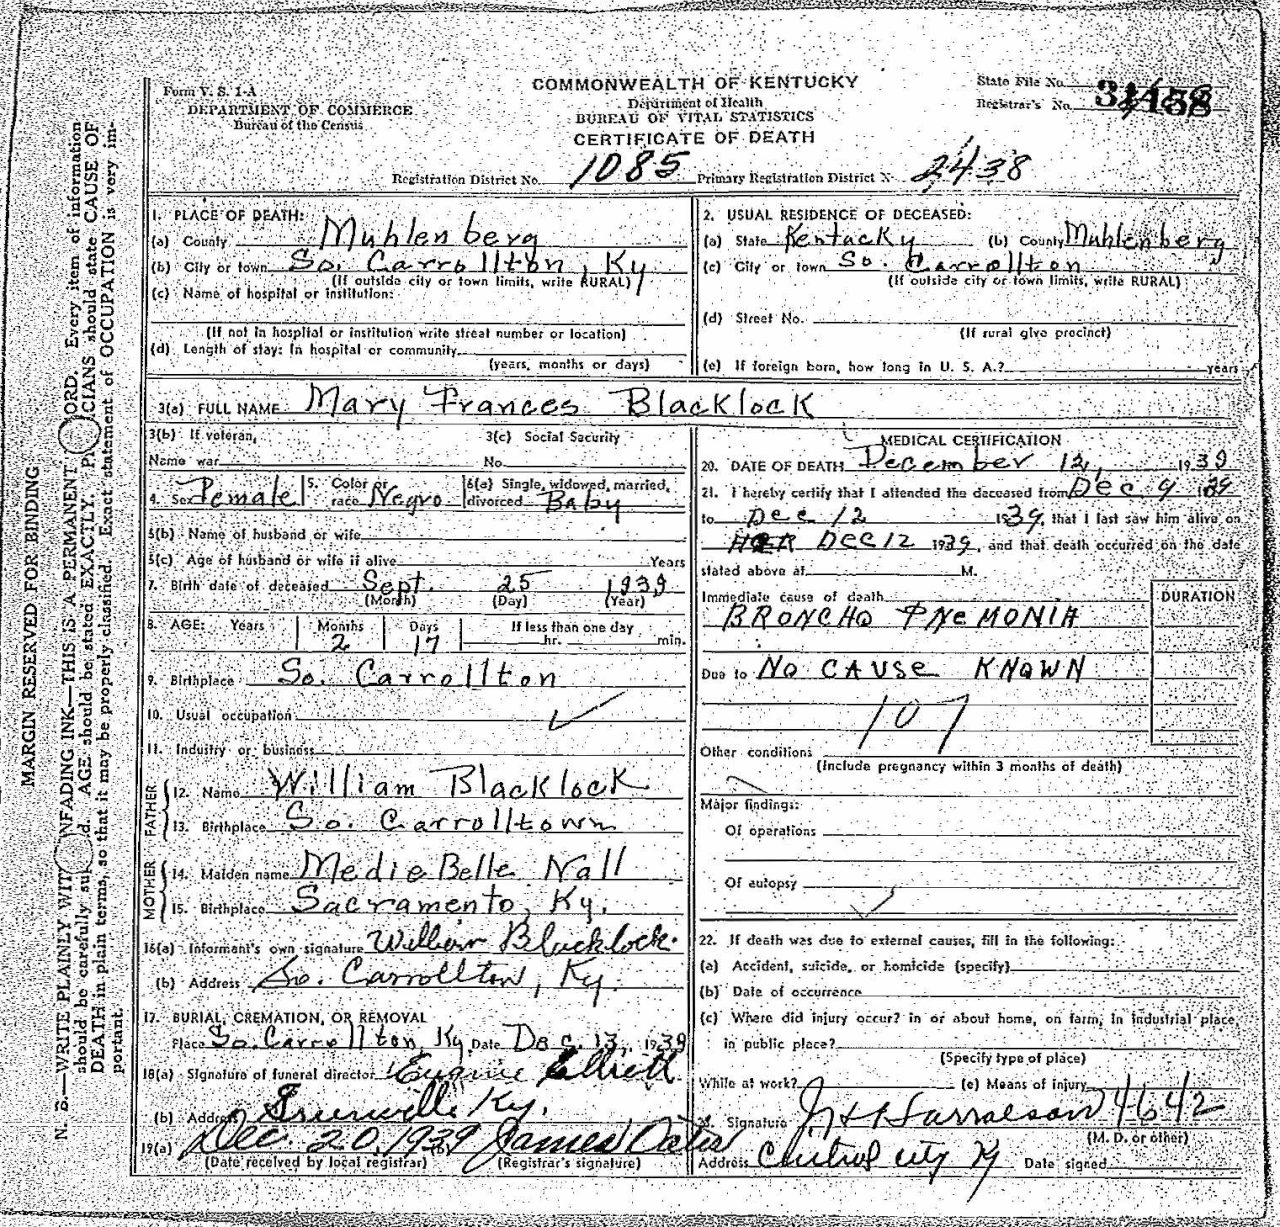 Form V. S. 1-A
DEPARTMENT OF COMMERCE
Bureau of the Census
COMMONWEALTH OF KENTUCKY
Department of Health
BUREAU OF VITAL STATISTICS
CERTIFICATE OF DEATH
State File No.
Registrar's No.
Registration District No. 1085 Primary Registration District No. 2438
1. PLACE OF DEATH:
(a) County Muhlenberg
(b) City or town So. Carrollton, Ky
(If outside city or town limits, write RURAL)
(c) Name of hospital or institution:
(If not in hospital or institution write street number or location)
(d) Length of stay: In hospital or community
(years, months or days)
2. USUAL RESIDENCE OF DECEASED:
(a) State Kentucky (b) County Muhlenberg
(c) City or town So. Carrollton
(If outside city or town limits, write RURAL)
(d) Street No.
(If rural give precinct)
(e) If foreign born, how long in U. S. A.? years
3(a) FULL NAME Mary Frances Blacklock
3(b) If veteran, 3(c) Social Security
Name war No.
4. Sex Female 5. Color or race Negro 6(a) Single, widowed, married, divorced Baby
6(b) Name of husband or wife
6(c) Age of husband or wife if alive Years
7. Birth date of deceased Sept. 25 1939
(Month) (Day) (Year)
8. AGE: Years Months Days If less than one day
2 17 hr. min.
9. Birthplace So. Carrollton
10. Usual occupation
11. Industry or business
FATHER
12. Name William Blacklock
13. Birthplace So. Carrolltown
MOTHER
14. Maiden name Medie Belle Nall
15. Birthplace Sacramento, Ky.
16(a) Informant's own signature William Blacklock
(b) Address So. Carrollton, Ky.
17. BURIAL, CREMATION, OR REMOVAL
Place So. Carrollton, Ky. Date Dec. 13, 1939
18(a) Signature of funeral director Eugene Elliott
(b) Address Greenville Ky.
19(a) Dec. 20, 1939 (b) James Oates
(Date received by local registrar) (Registrar's signature)
MEDICAL CERTIFICATION
20. DATE OF DEATH December 12, 1939
21. I hereby certify that I attended the deceased from Dec 9 1939
to Dec 12 1939, that I last saw him alive on
HER DEC 12 1939, and that death occurred on the date
stated above at M.
Immediate cause of death DURATION
BRONCHO PNEMONIA
Due to NO CAUSE KNOWN
107
Other conditions
(Include pregnancy within 3 months of death)
Major findings:
Of operations
Of autopsy
22. If death was due to external causes, fill in the following:
(a) Accident, suicide, or homicide (specify)
(b) Date of occurrence
(c) Where did injury occur? in or about home, on farm, in industrial place,
in public place?
(Specify type of place)
While at work? (e) Means of injury
Signature Harralson 4642
(M. D. or other)
Address Central City Ky Date signed
MARGIN RESERVED FOR BINDING
N. B.—WRITE PLAINLY WITH UNFADING INK—THIS IS A PERMANENT RECORD. Every item of information
should be carefully supplied. AGE should be stated EXACTLY. PHYSICIANS should state CAUSE OF
DEATH in plain terms, so that it may be properly classified. Exact statement of OCCUPATION is very im-
portant.